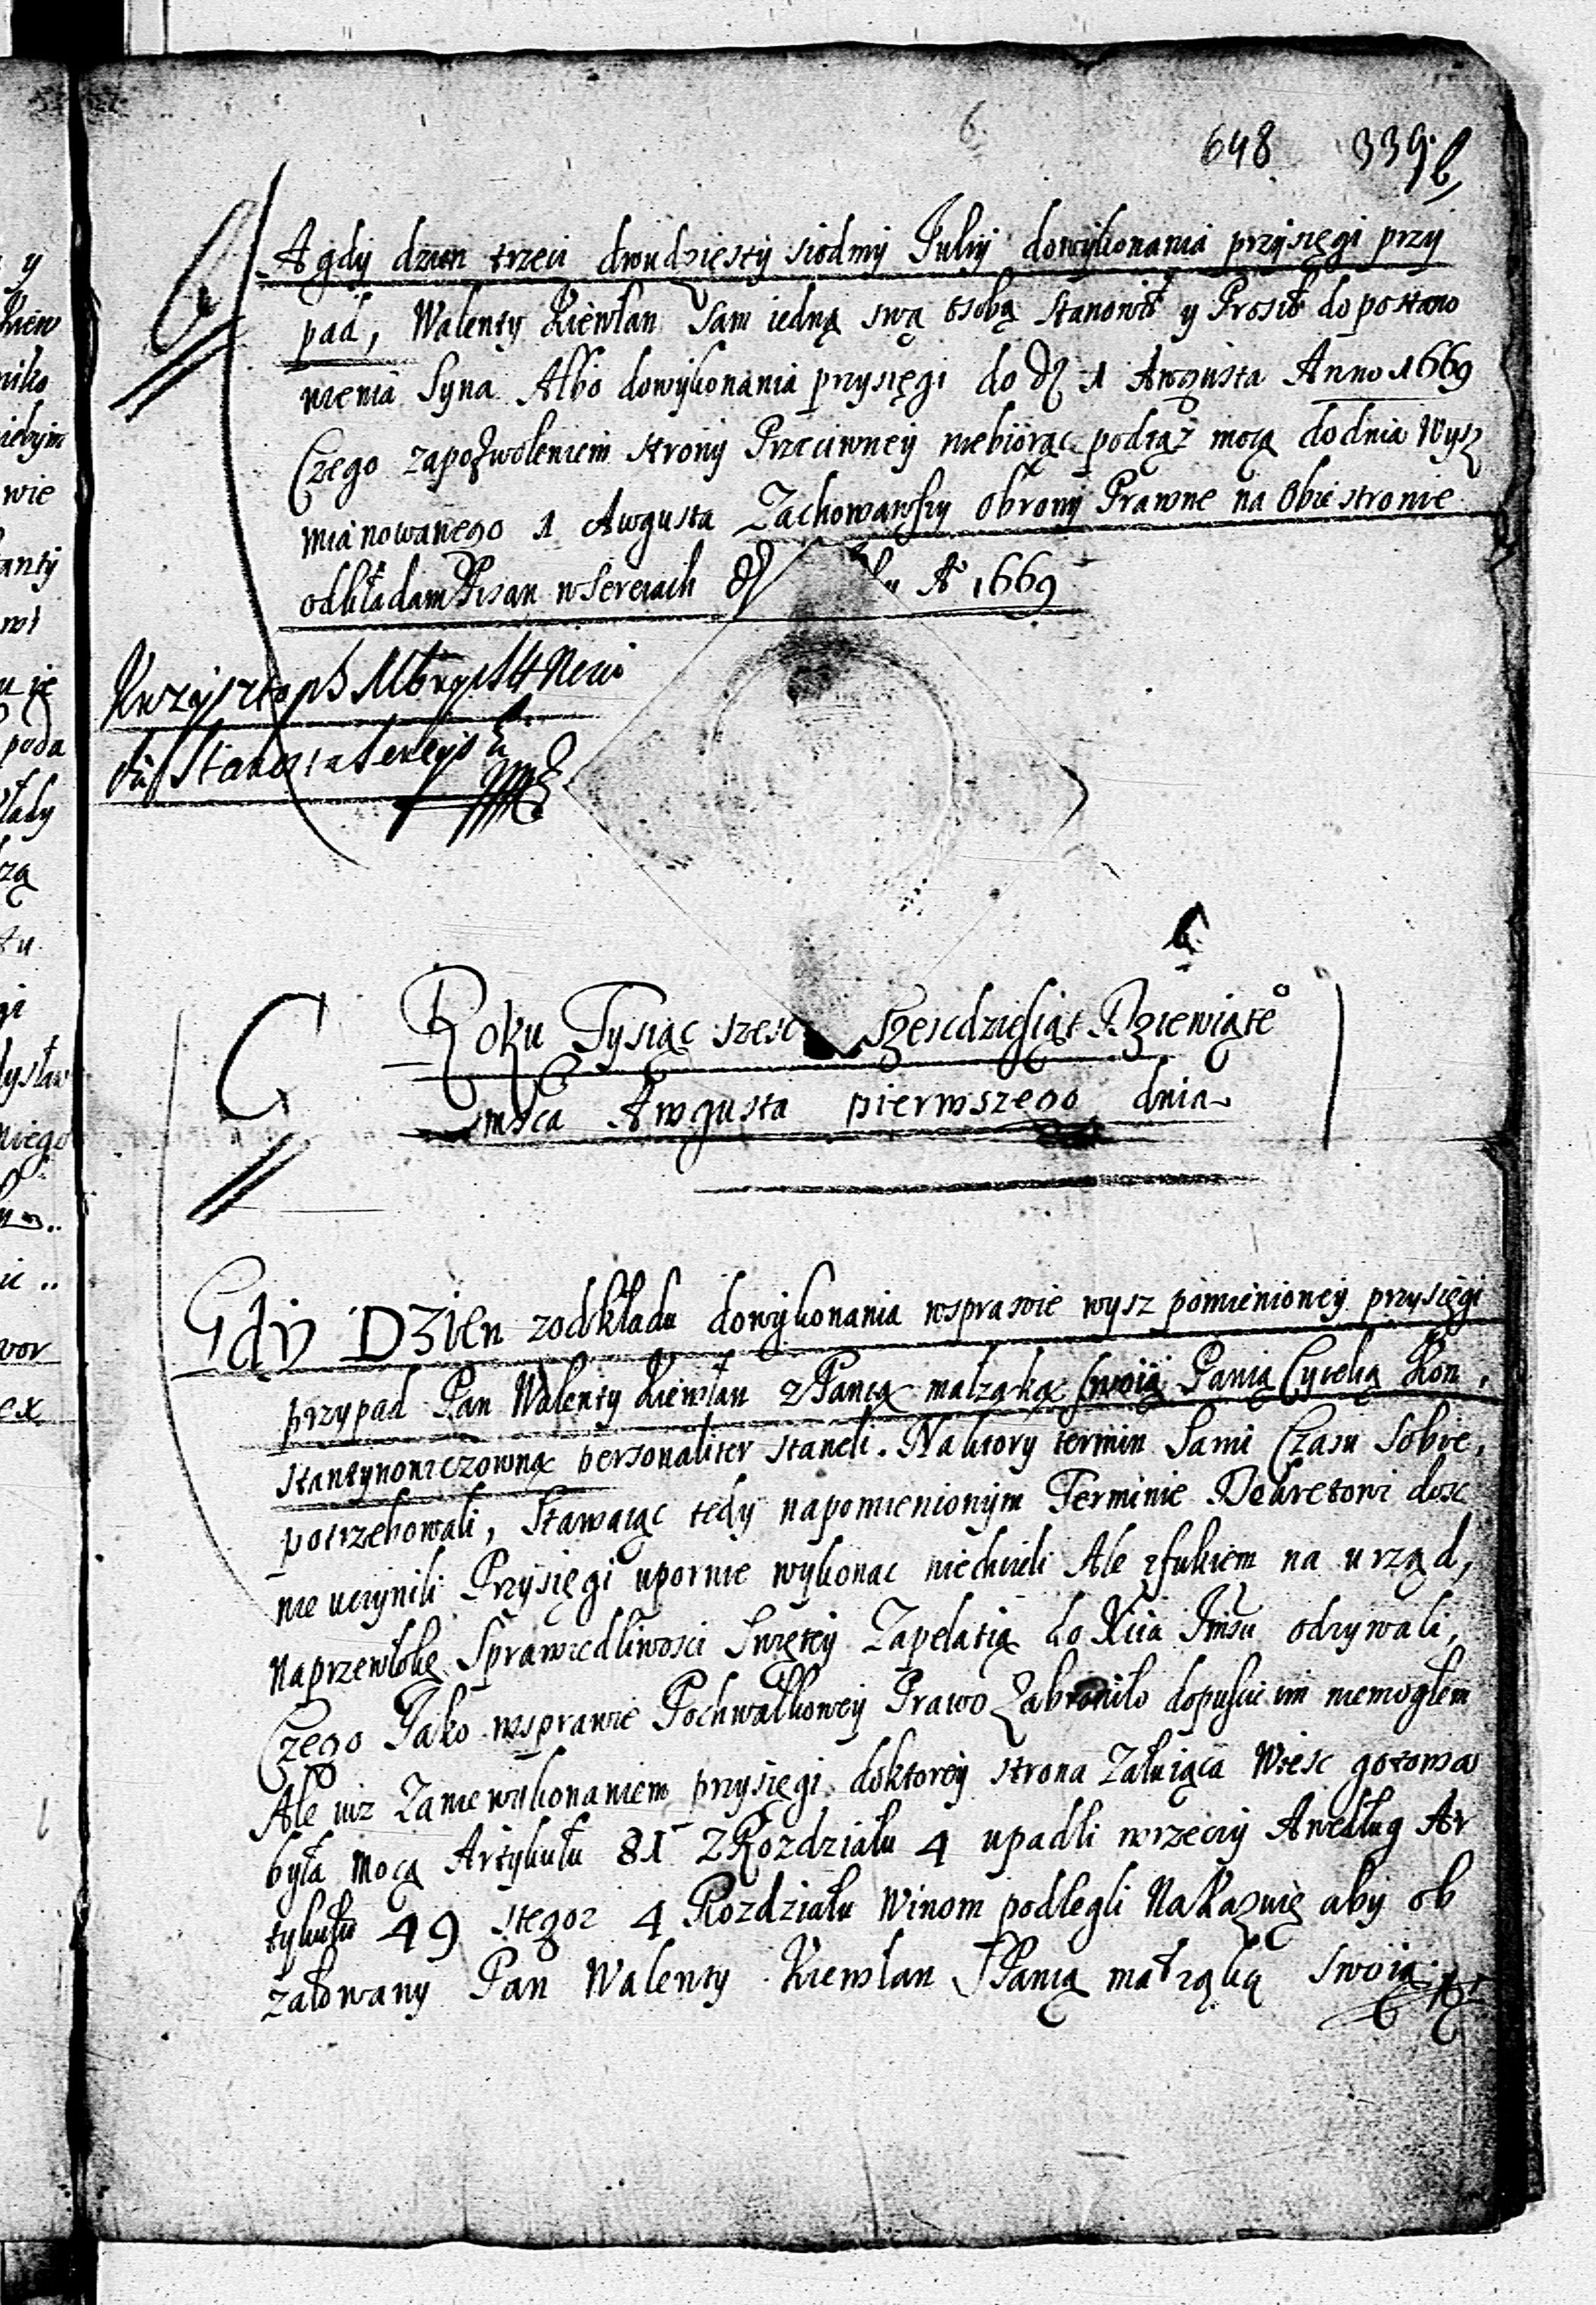 6.
648 339.
A gdy dzien trzeci dwudziesty siodmy Julij dowykonania przysięgi przy
pad, Walenty Kiewłan Sam iedną swą osobą stanowił y Prosił do postano
wienia Syna Albo dowykonania przysięgi do 1 Awgusta Anno 1669
Czego zapozwoleniem strony Przeciwney niebiorąc podtąż mocą dodnia wysz
mianowanego 1 Awgusta Zachowawszy Obrony Prawne na Obie stronie
odkładam Pisan w Sereiach A° 1669
Krzysztoph
Starosta Sereys
Roku Tysiąc szesc szescdziesiąt Dziewiąte°
msca Awgusta pierwszego dnia
Gdy Dzien zodkładu dowykonania wsprawie wysz pomienioney przysięgi
przypad Pan Walenty Kiewłan z Panią małząką swoią Panią Cycelią Kon,
stantynowiczowną personaliter staneli. Naktory termin Sami Czasu Sobie,
potrzebowali, Stawaiąc tedy napomienionym Terminie Dekretowi dosc
nie uczynili Przysięgi upornie wykonac niechcieli Ale zfukiem na urząd,
naprzewłokę Sprawiedliwosci Swiętey Zapelatią do Xcia Jmsci odzywali,
Czego Jako wsprawie Pochwałkowey Prawo Zabroniło dopuscic im niemogłem
Ale iuz Zaniewykonaniem przysięgi doktorey strona Załuiąca Wiesc gotowa
była mocą Artykułu 81 z Rozdziału 4 upadli wrzeczy Awedług Ar
tykułu 49 stegoz 4 Rozdziału Winom podlegli Nakazuię aby ob
załowany Pan Walenty Kiewłan S Panią małząką swoią